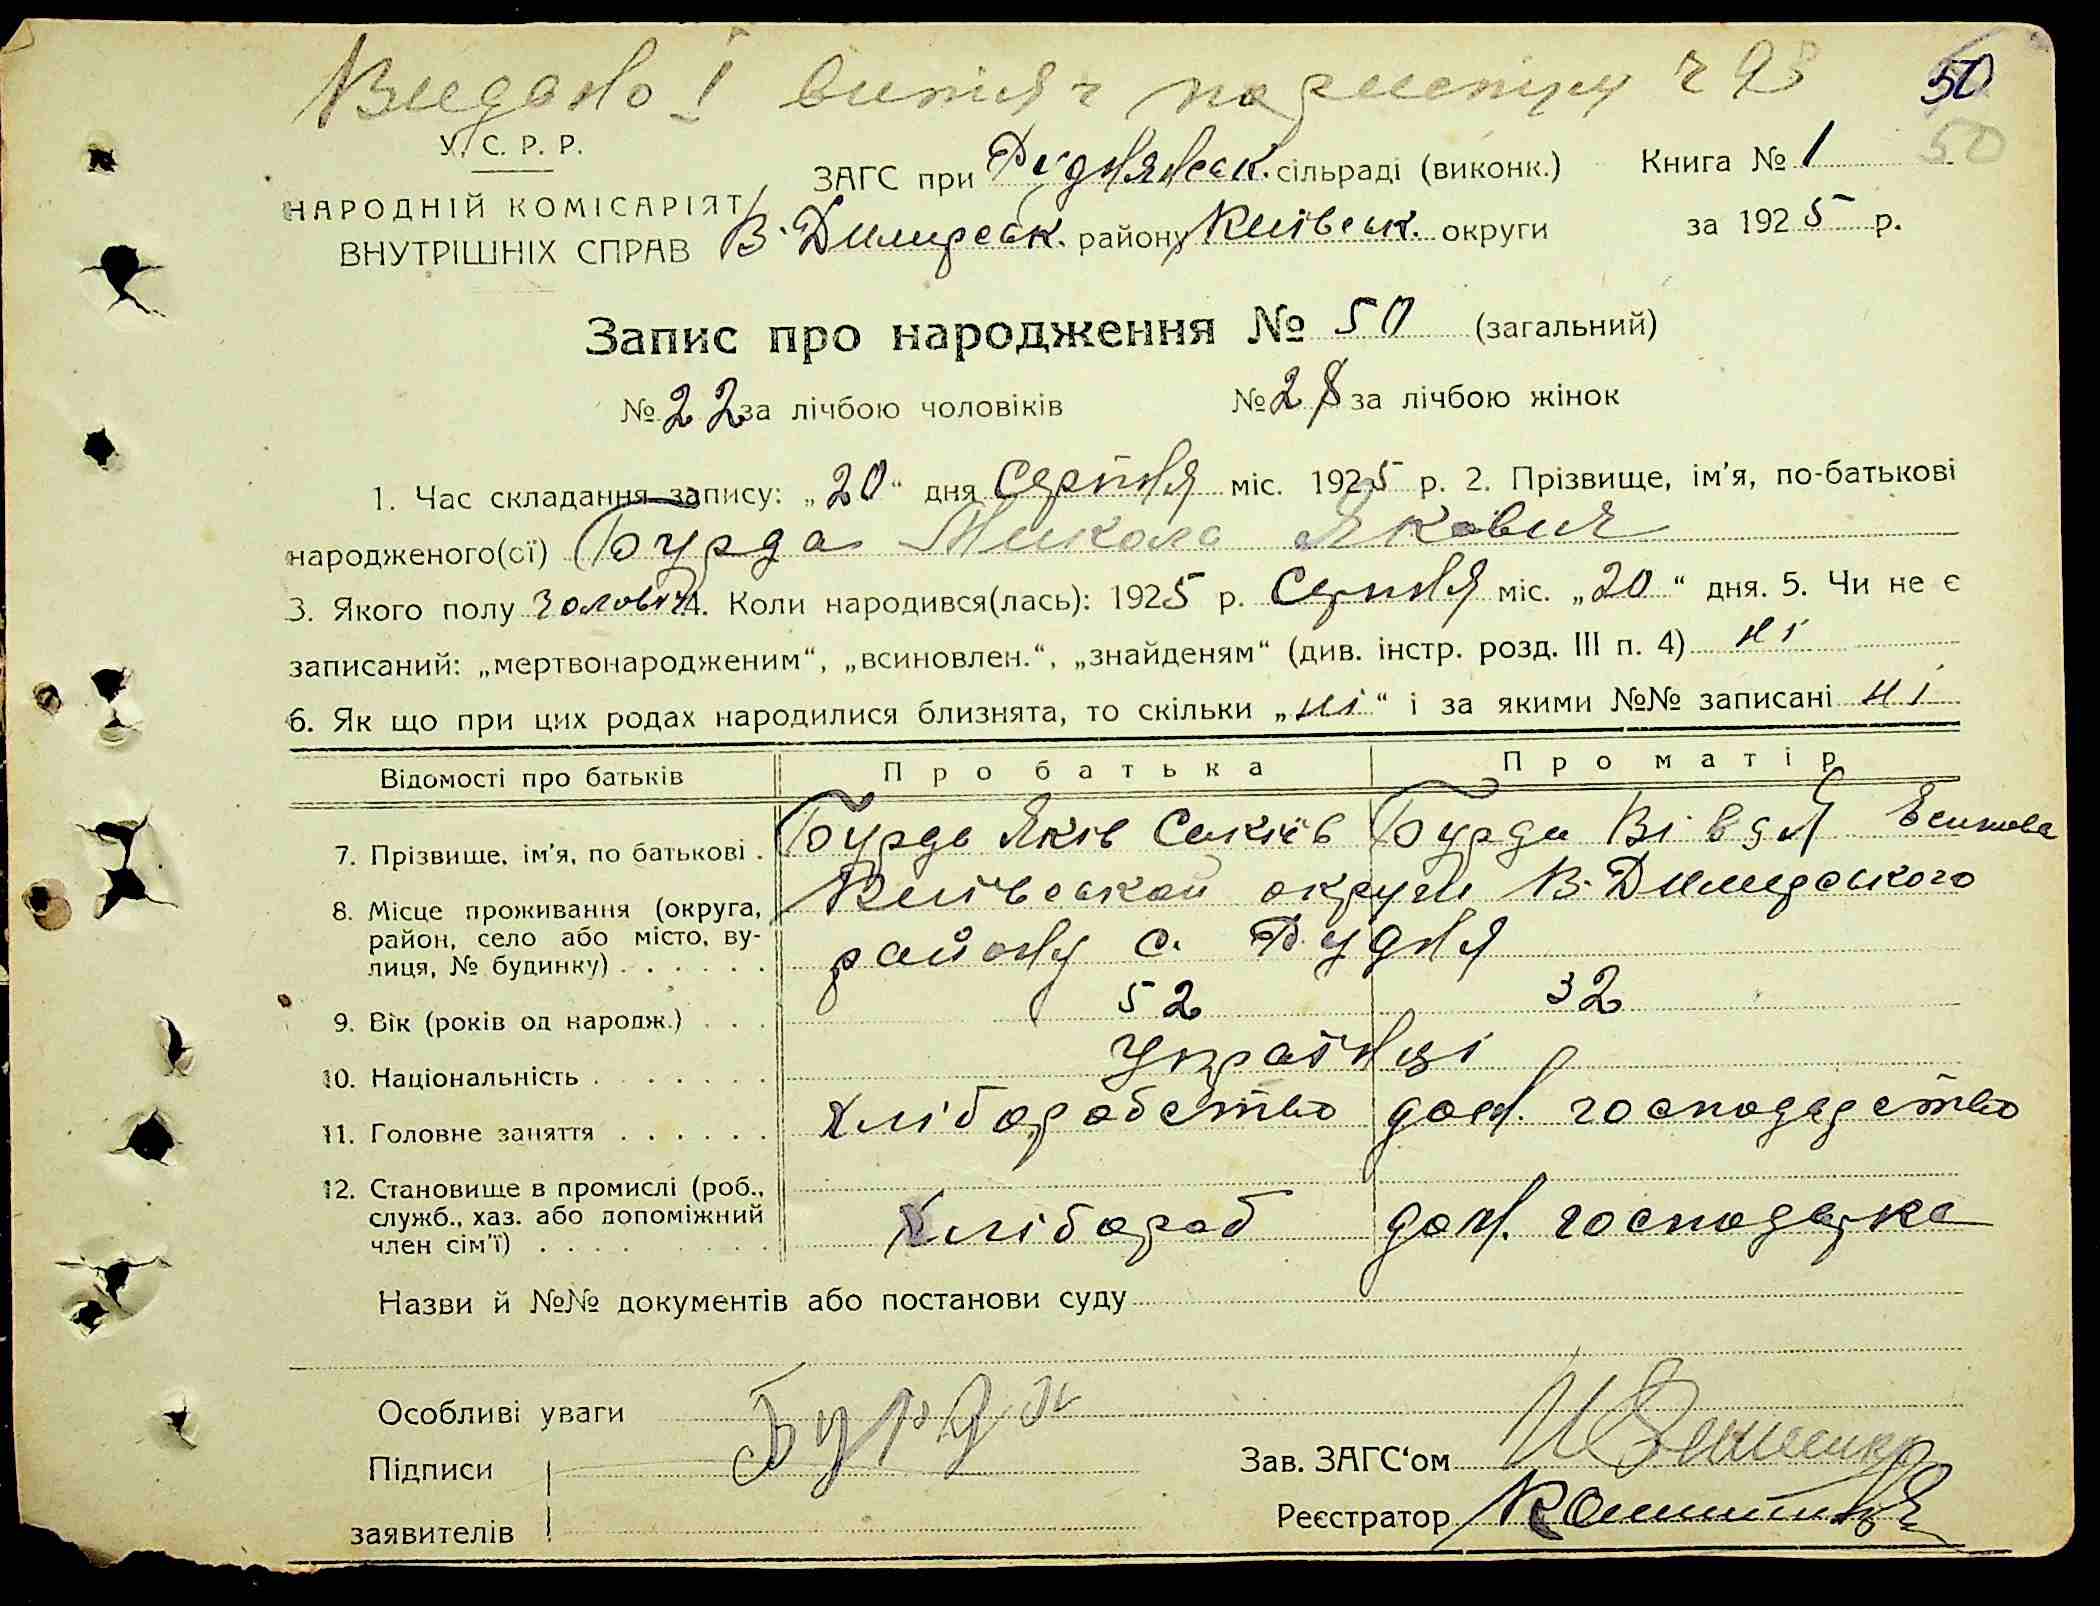 Видано 1 витяг по реєстру ч 93
50
50
У. С. Р. Р.
НАРОДНІЙ КОМІСАРІЯТ
ВНУТРІШНІХ СПРАВ
ЗАГС при Руднянськ. сільраді (виконк.) Книга № 1
В. Димерськ. району Київськ. округи за 1925 р.
Запис про народження № 50 (загальний)
№ 22 за лічбою чоловіків № 28 за лічбою жінок
1. Час складання запису: „20“ дня Серпня міс. 1925 р. 2. Прізвище, ім'я, по-батькові
народженого(ої) Бурда Микола Якович
3. Якого полу чоловіч 4. Коли народився(лась): 1925 р. Серпня міс. „20“ дня. 5. Чи не є
записаний: „мертвонародженим“, „всиновлен.“, „знайденям“ (див. інстр. розд. III п. 4) ні
6. Як що при цих родах народилися близнята, то скільки „ні“ і за якими №№ записані ні
Відомості про батьків Про батька Про матір
7. Прізвище, ім'я, по батькові . Бурда Яків Бурда Вівдя
8. Місце проживання (округа, Київської округи В. Димерського
район, село або місто, ву- району с. Рудня
лиця, № будинку) . . . . . .
9. Вік (років од народж.) . . . 52 32
10. Національність . . . . . . . Українці
11. Головне заняття . . . . . . Хліборобство дом. господарство
12. Становище в промислі (роб.,
служб., хаз. або допоміжний Хлібороб дом. господарка
член сім'ї) . . . . . . . . .
Назви й №№ документів або постанови суду
Особливі уваги
Підписи Бурда
Зав. ЗАГС'ом
заявителів
Реєстратор